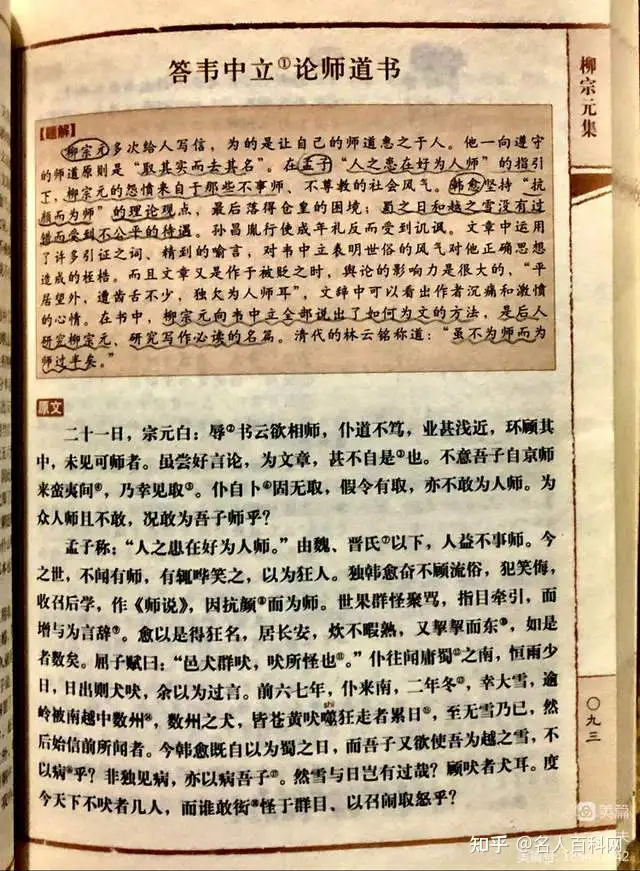 答韦中立①论师道书
柳宗元集
【题解】
柳宗元多次给人写信，为的是让自己的师道惠之于人。他一向遵守
的师道原则是“取其实而去其名”。在孟子“人之患在好为人师”的指引
下，柳宗元的怨愤来自于那些不事师、不尊教的社会风气。韩愈坚持“抗
颜而为师”的理论观点，最后落得仓皇的困境；蜀之日和越之雪没有过
错而受到不公平的待遇。孙昌胤行使成年礼反而受到讥讽。文章中运用
了许多引证之词、精到的喻言，对韦中立表明世俗的风气对他正确思想
造成的桎梏。而且文章又是作于被贬之时，舆论的影响力是很大的，“平
居望外，遭齿舌不少，独欠为人师耳”，文辞中可以看出作者沉痛和激愤
的心情。在书中，柳宗元向韦中立全部说出了如何为文的方法，是后人
研究柳宗元、研究写作必读的名篇。清代的林云铭称道：“虽不为师而为
师过半矣。”
原文
二十一日，宗元白：辱②书云欲相师，仆道不笃，业甚浅近，环顾其
中，未见可师者。虽尝好言论，为文章，甚不自是③也。不意吾子自京师
来蛮夷间④，乃幸见取⑤。仆自卜⑥固无取，假令有取，亦不敢为人师。为
众人师且不敢，况敢为吾子师乎？
孟子称：“人之患在好为人师。”由魏、晋氏⑦以下，人益不事师。今
之世，不闻有师，有辄哗笑之，以为狂人。独韩愈奋不顾流俗，犯笑侮，
收召后学，作《师说》，因抗颜⑧而为师。世果群怪聚骂，指目牵引，而
增与为言辞⑨。愈以是得狂名，居长安，炊不暇熟，又挈挈而东⑩，如是
者数矣。屈子赋曰：“邑犬群吠，吠所怪也⑪。”仆往闻庸蜀⑫之南，恒雨少
日，日出则犬吠，余以为过言。前六七年，仆来南，二年冬⑬，幸大雪，逾
岭被南越中数州⑭，数州之犬，皆苍黄吠噬狂走者累日⑮，至无雪乃已，然
shì
后始信前所闻者。今韩愈既自以为蜀之日，而吾子又欲使吾为越之雪，不
以病⑯乎？非独见病，亦以病吾子⑰。然雪与日岂有过哉？顾吠者犬耳。度
今天下不吠者几人，而谁敢衒⑱怪于群目、以召闹取怒乎？
〇九三
美篇
知乎 @名人百科网